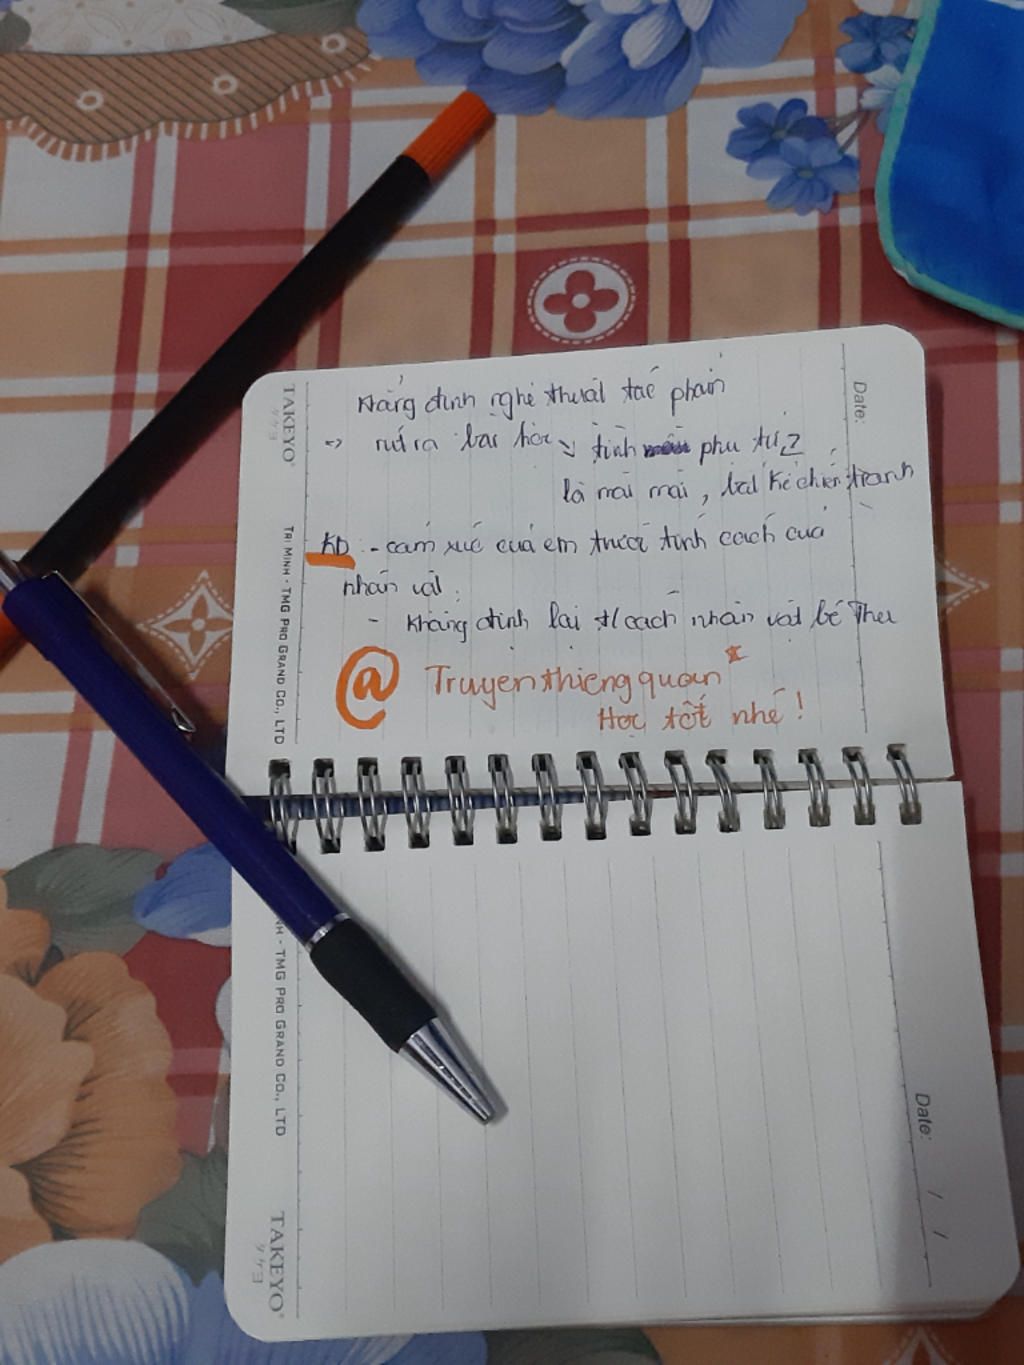 Khẳng định nghệ thuật tác phẩm
=> rút ra bài học > tình phụ tử
là mãi mãi, bất kể chiến tranh
KB: - cảm xúc của em trước tính cách của
nhân vật.
- Khẳng định lại t/cách nhân vật bé Thu
@ Truyenthiengquan
Học tốt nhé!
Date:
TAKEYO
TRI MINH - TMG PRO GRAND CO., LTD
NH - TMG PRO GRAND CO., LTD
TAKEYO
Date: / /